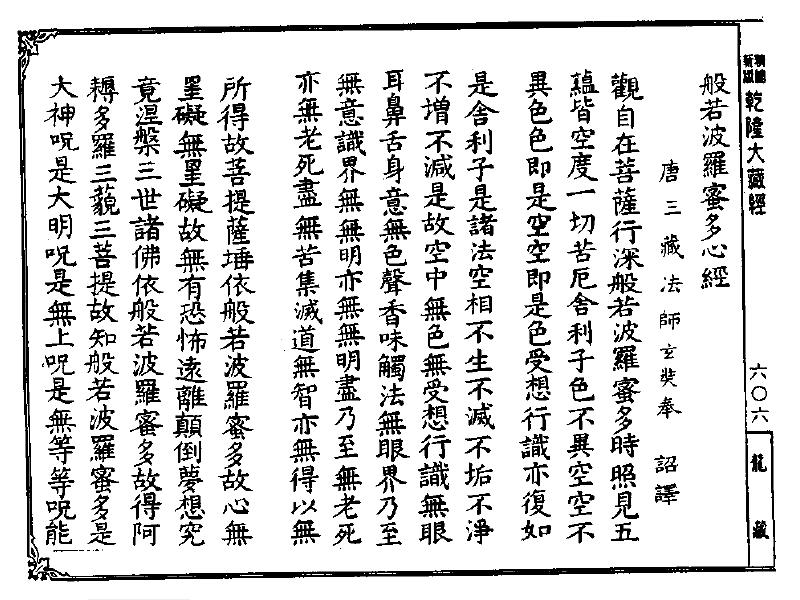 新編縮版乾隆大藏經
六〇六
龍藏
般若波羅蜜多心經
唐三藏法師玄奘奉 詔譯
觀自在菩薩行深般若波羅蜜多時照見五
蘊皆空度一切苦厄舍利子色不異空空不
異色色即是空空即是色受想行識亦復如
是舍利子是諸法空相不生不滅不垢不淨
不增不減是故空中無色無受想行識無眼
耳鼻舌身意無色聲香味觸法無眼界乃至
無意識界無無明亦無無明盡乃至無老死
亦無老死盡無苦集滅道無智亦無得以無
所得故菩提薩埵依般若波羅蜜多故心無
罣礙無罣礙故無有恐怖遠離顛倒夢想究
竟涅槃三世諸佛依般若波羅蜜多故得阿
耨多羅三藐三菩提故知般若波羅蜜多是
大神咒是大明咒是無上咒是無等等咒能